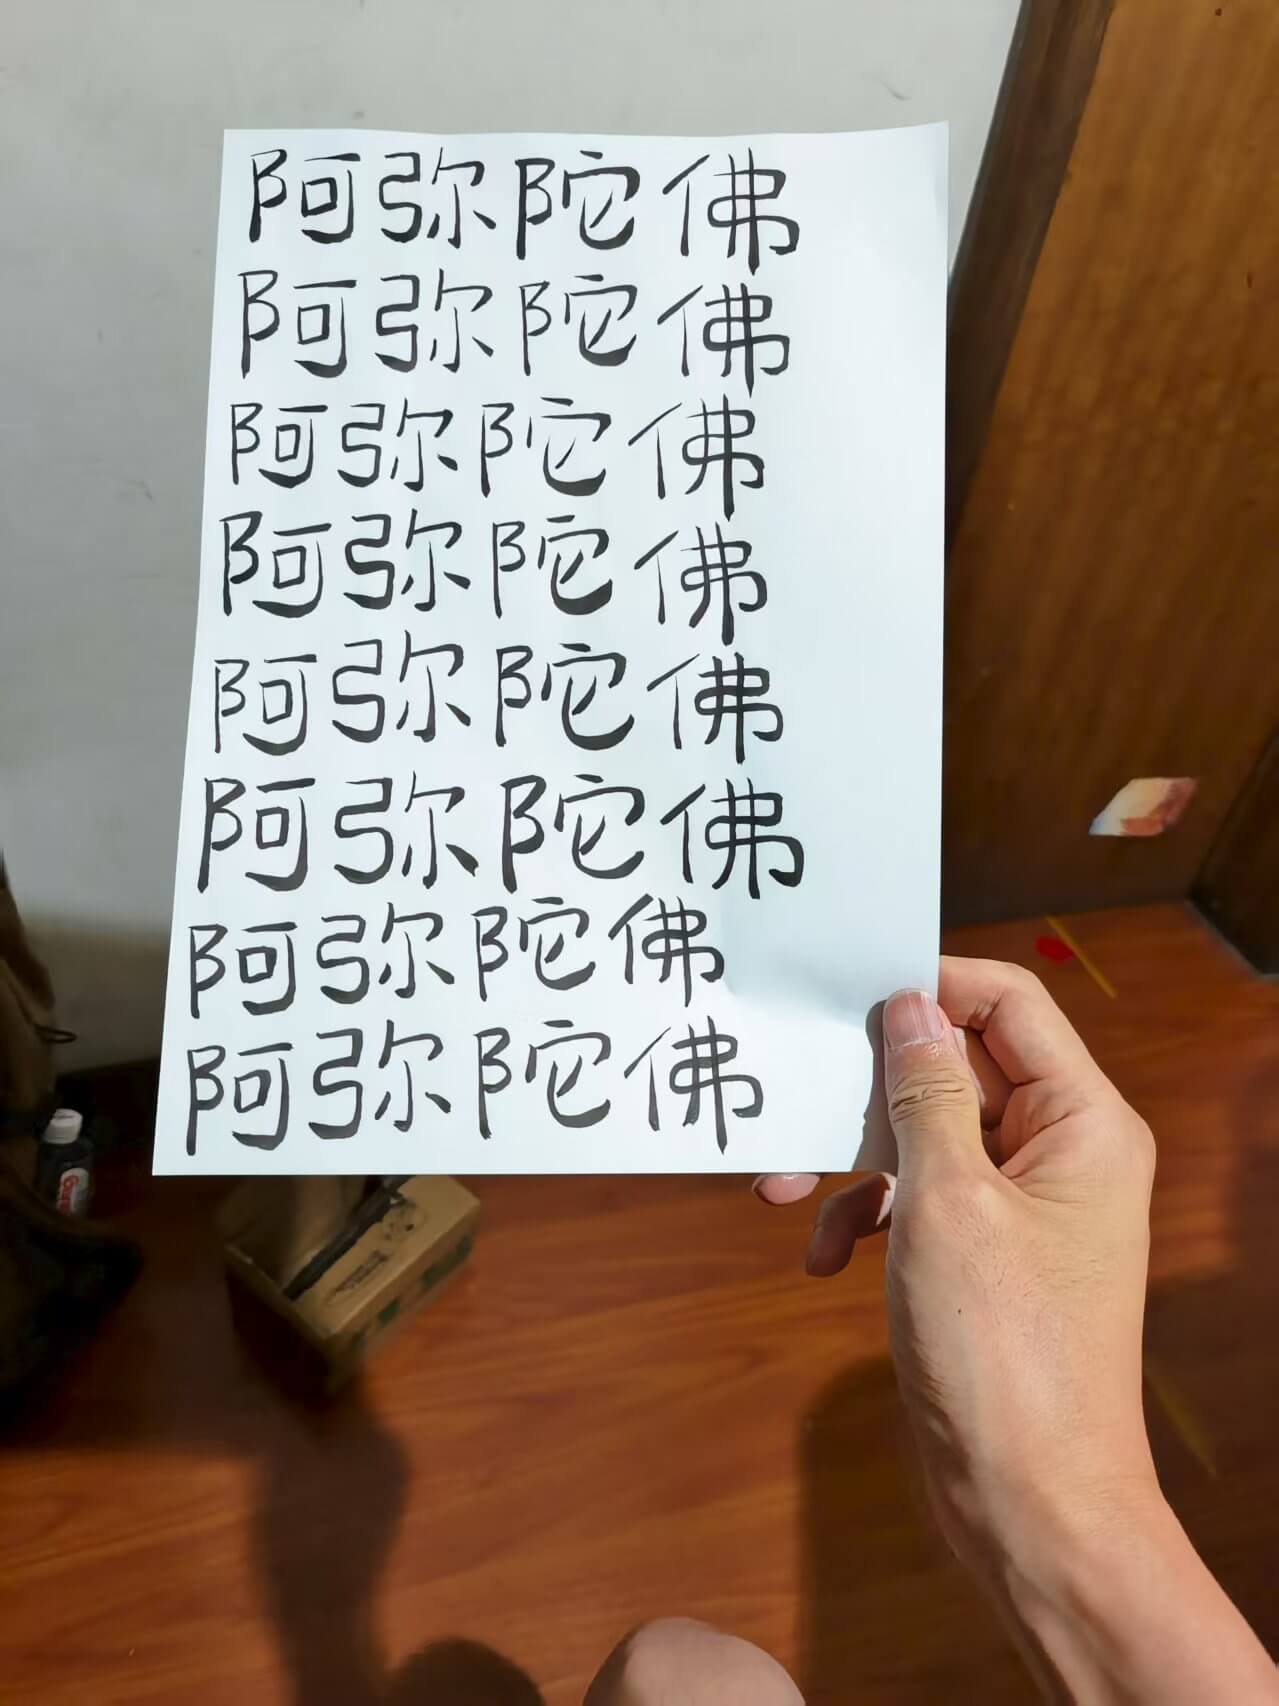 阿弥陀佛
阿弥陀佛
阿弥陀佛
阿弥陀佛
阿弥陀佛
阿弥陀佛
阿弥陀佛
阿弥陀佛